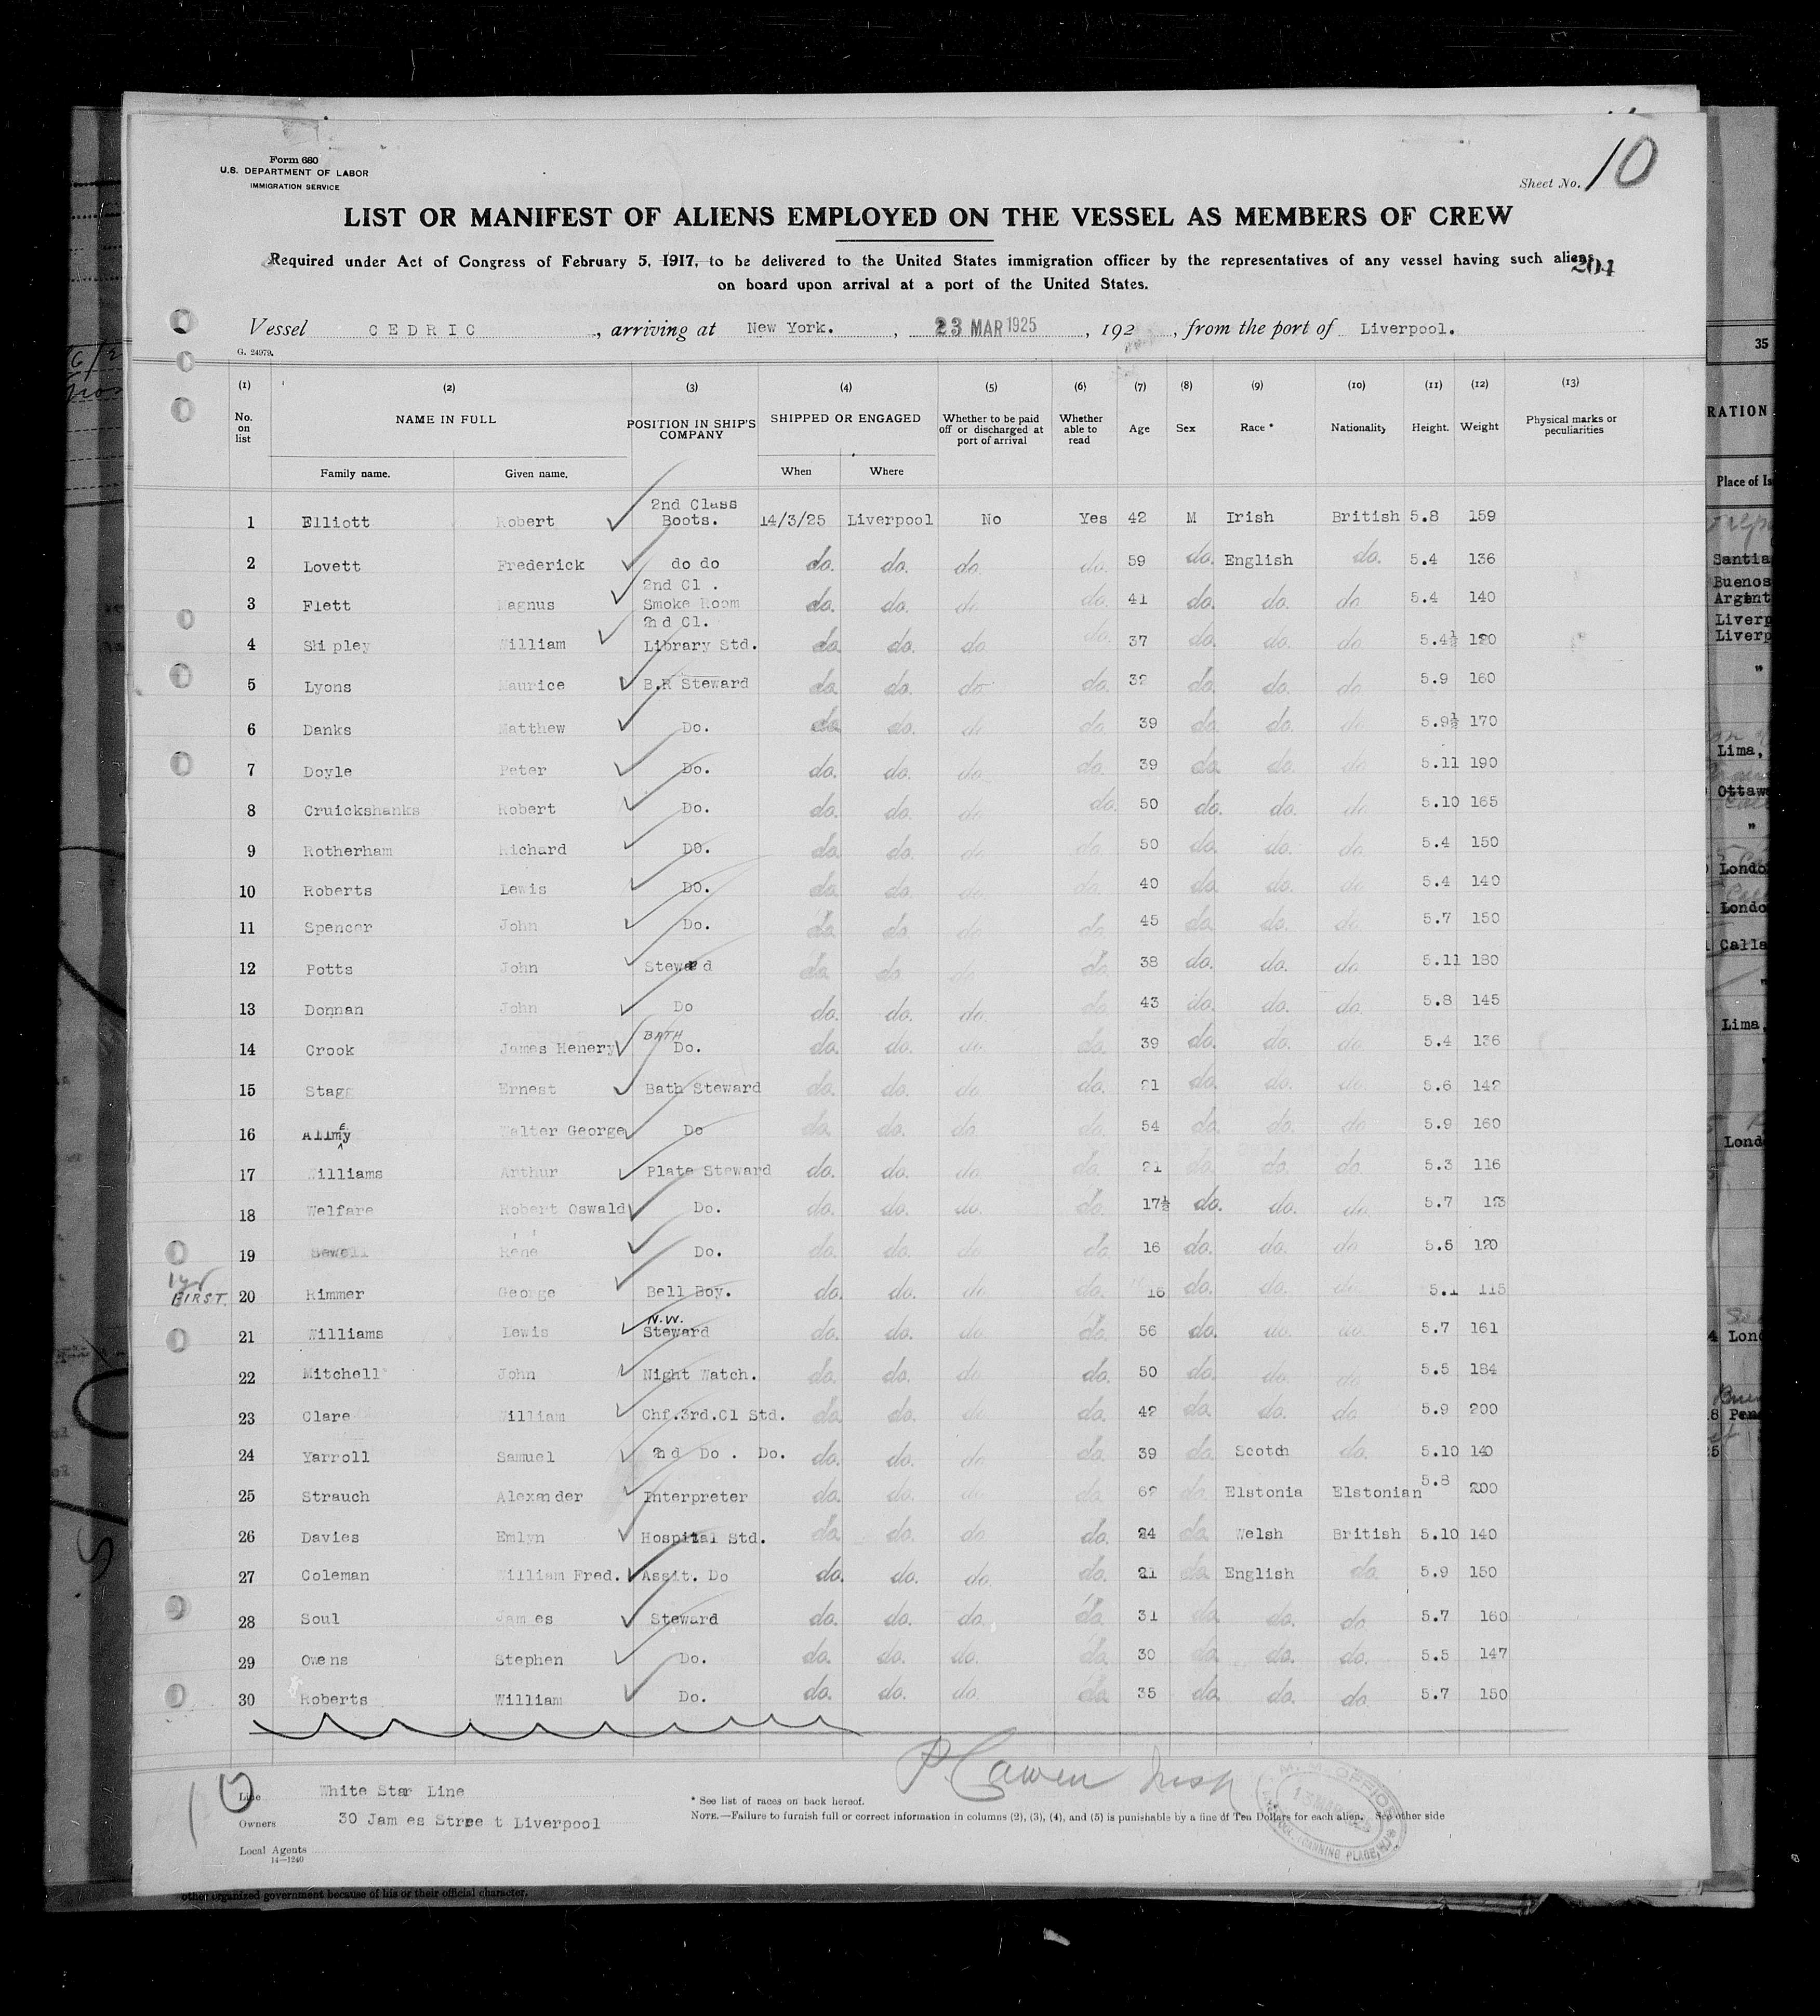 Form 680
U.S. DEPARTMENT OF LABOR
IMMIGRATION SERVICE
Sheet No. 10
LIST OR MANIFEST OF ALIENS EMPLOYED ON THE VESSEL AS MEMBERS OF CREW
Required under Act of Congress of February 5, 1917, to be delivered to the United States immigration officer by the representatives of any vessel having such aliens
204
on board upon arrival at a port of the United States.
Vessel CEDRIC, arriving at New York., 23 MAR 1925, 192 , from the port of Liverpool.
G. 24979.
(1) (2) (3) (4) (5) (6) (7) (8) (9) (10) (11) (12) (13)
No. on list NAME IN FULL POSITION IN SHIP'S COMPANY SHIPPED OR ENGAGED Whether to be paid off or discharged at port of arrival Whether able to read Age Sex Race * Nationality Height. Weight Physical marks or peculiarities
Family name. Given name. When Where
1 Elliott Robert 2nd Class Boots. 14/3/25 Liverpool No Yes 42 M Irish British 5.8 159
2 Lovett Frederick do do do. do. do. do. 59 do. English do. 5.4 136
3 Flett Magnus 2nd Cl. Smoke Room do. do. do do. 41 do. do. do 5.4 140
4 Shipley William 2nd Cl. Library Std. do. do. do do. 37 do. do. do 5.4½ 120
5 Lyons Maurice B.R Steward do. do. do do. 32 do. do. do 5.9 160
6 Danks Matthew Do. do. do. do do. 39 do. do. do 5.9½ 170
7 Doyle Peter Do. do. do. do do. 39 do. do. do 5.11 190
8 Cruickshanks Robert Do. do. do. do do. 50 do. do. do 5.10 165
9 Rotherham Richard Do. do. do. do do. 50 do. do. do 5.4 150
10 Roberts Lewis Do. do. do. do do. 40 do. do. do 5.4 140
11 Spencer John Do. do. do. do do. 45 do. do. do 5.7 150
12 Potts John Steward do. do. do do. 38 do. do. do 5.11 180
13 Donnan John Do do. do. do. do. 43 do. do. do. 5.8 145
14 Crook James Henery BATH Do. do. do. do. do. 39 do. do. do 5.4 136
15 Stagg Ernest Bath Steward do. do. do do. 21 do. do. do 5.6 142
16 AllmEy Walter George Do do. do. do. do. 54 do. do. do 5.9 160
17 Williams Arthur Plate Steward do. do. do. do. 21 do. do. do. 5.3 116
18 Welfare Robert Oswald Do. do. do. do. do. 17½ do. do. do. 5.7 123
19 Sewell Rene Do. do. do. do. do. 16 do. do. do 5.5 120
1 yr FIRST. 20 Rimmer George Bell Boy. do. do. do do. 16 do. do. do 5.1 115
21 Williams Lewis N.W. Steward do. do. do do. 56 do. do. do. 5.7 161
22 Mitchell John Night Watch. do. do. do do. 50 do. do. do 5.5 184
23 Clare William Chf.3rd.Cl Std. do. do. do do. 42 do. do. do 5.9 200
24 Yarroll Samuel 2nd Do . Do. do. do. do do. 39 do. Scotch do. 5.10 140
25 Strauch Alexander Interpreter do. do. do do. 62 do. Elstonia Elstonian 5.8 200
26 Davies Emlyn Hospital Std. do. do. do do. 24 do. Welsh British 5.10 140
27 Coleman William Fred. Assit. Do do. do. do. do. 21 do. English do. 5.9 150
28 Soul James Steward do. do. do. do. 31 do. do. do. 5.7 160
29 Owens Stephen Do. do. do. do. do. 30 do. do. do. 5.5 147
30 Roberts William Do. do. do. do. do. 35 do. do. do. 5.7 150
P Cawen Insp
10
Line White Star Line
Owners 30 James Street Liverpool
Local Agents
14—1240
* See list of races on back hereof.
NOTE.—Failure to furnish full or correct information in columns (2), (3), (4), and (5) is punishable by a fine of Ten Dollars for each alien. See other side
other organized government because of his or their official character.
35
RATION
Santia
Buenos
Argent
Liverp
Liverp
"
Lima,
Ottawa
"
Londo
Londo
Calla
Lima,
Lond
Lond